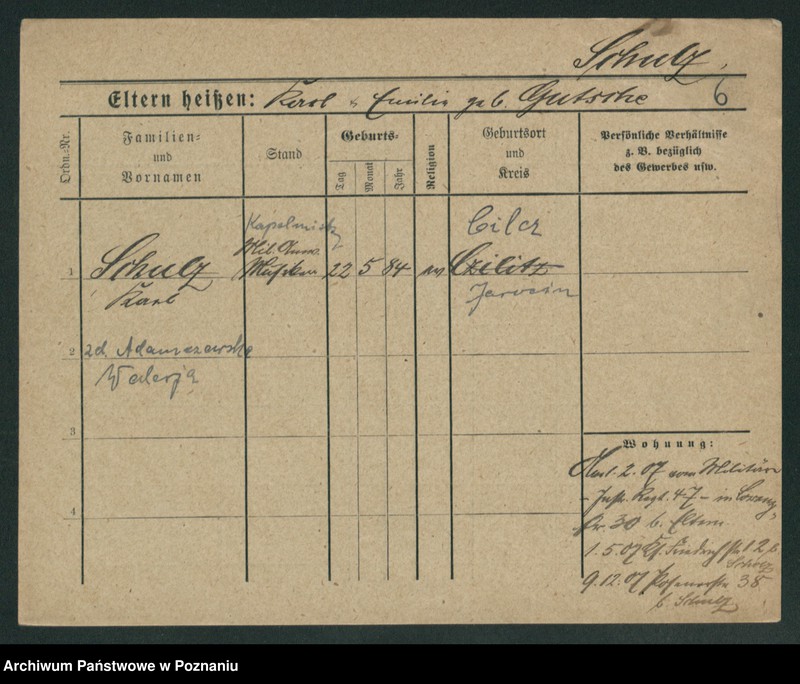 Schulz
Eltern heißen: Karl u Emilie geb. Gutsche 6
Ordn.-Nr.
Familien-
und
Vornamen
Stand
Geburts-
Tag
Monat
Jahr
Religion
Geburtsort
und
Kreis
Persönliche Verhältnisse
z. B. bezüglich
des Gewerbes usw.
1
Schulz
Karl
Mil.
22 5 84 ev
Czilitz
Jarocin
2
zd. Adamczewska
Walerja
3
4
Wohnung:
2. 07 vom Militär
Inft. Regt. 47
30 b. Eltern
1. 5. 07
9. 12. 07 Posenerstr 38
b. Schulz
Archiwum Państwowe w Poznaniu